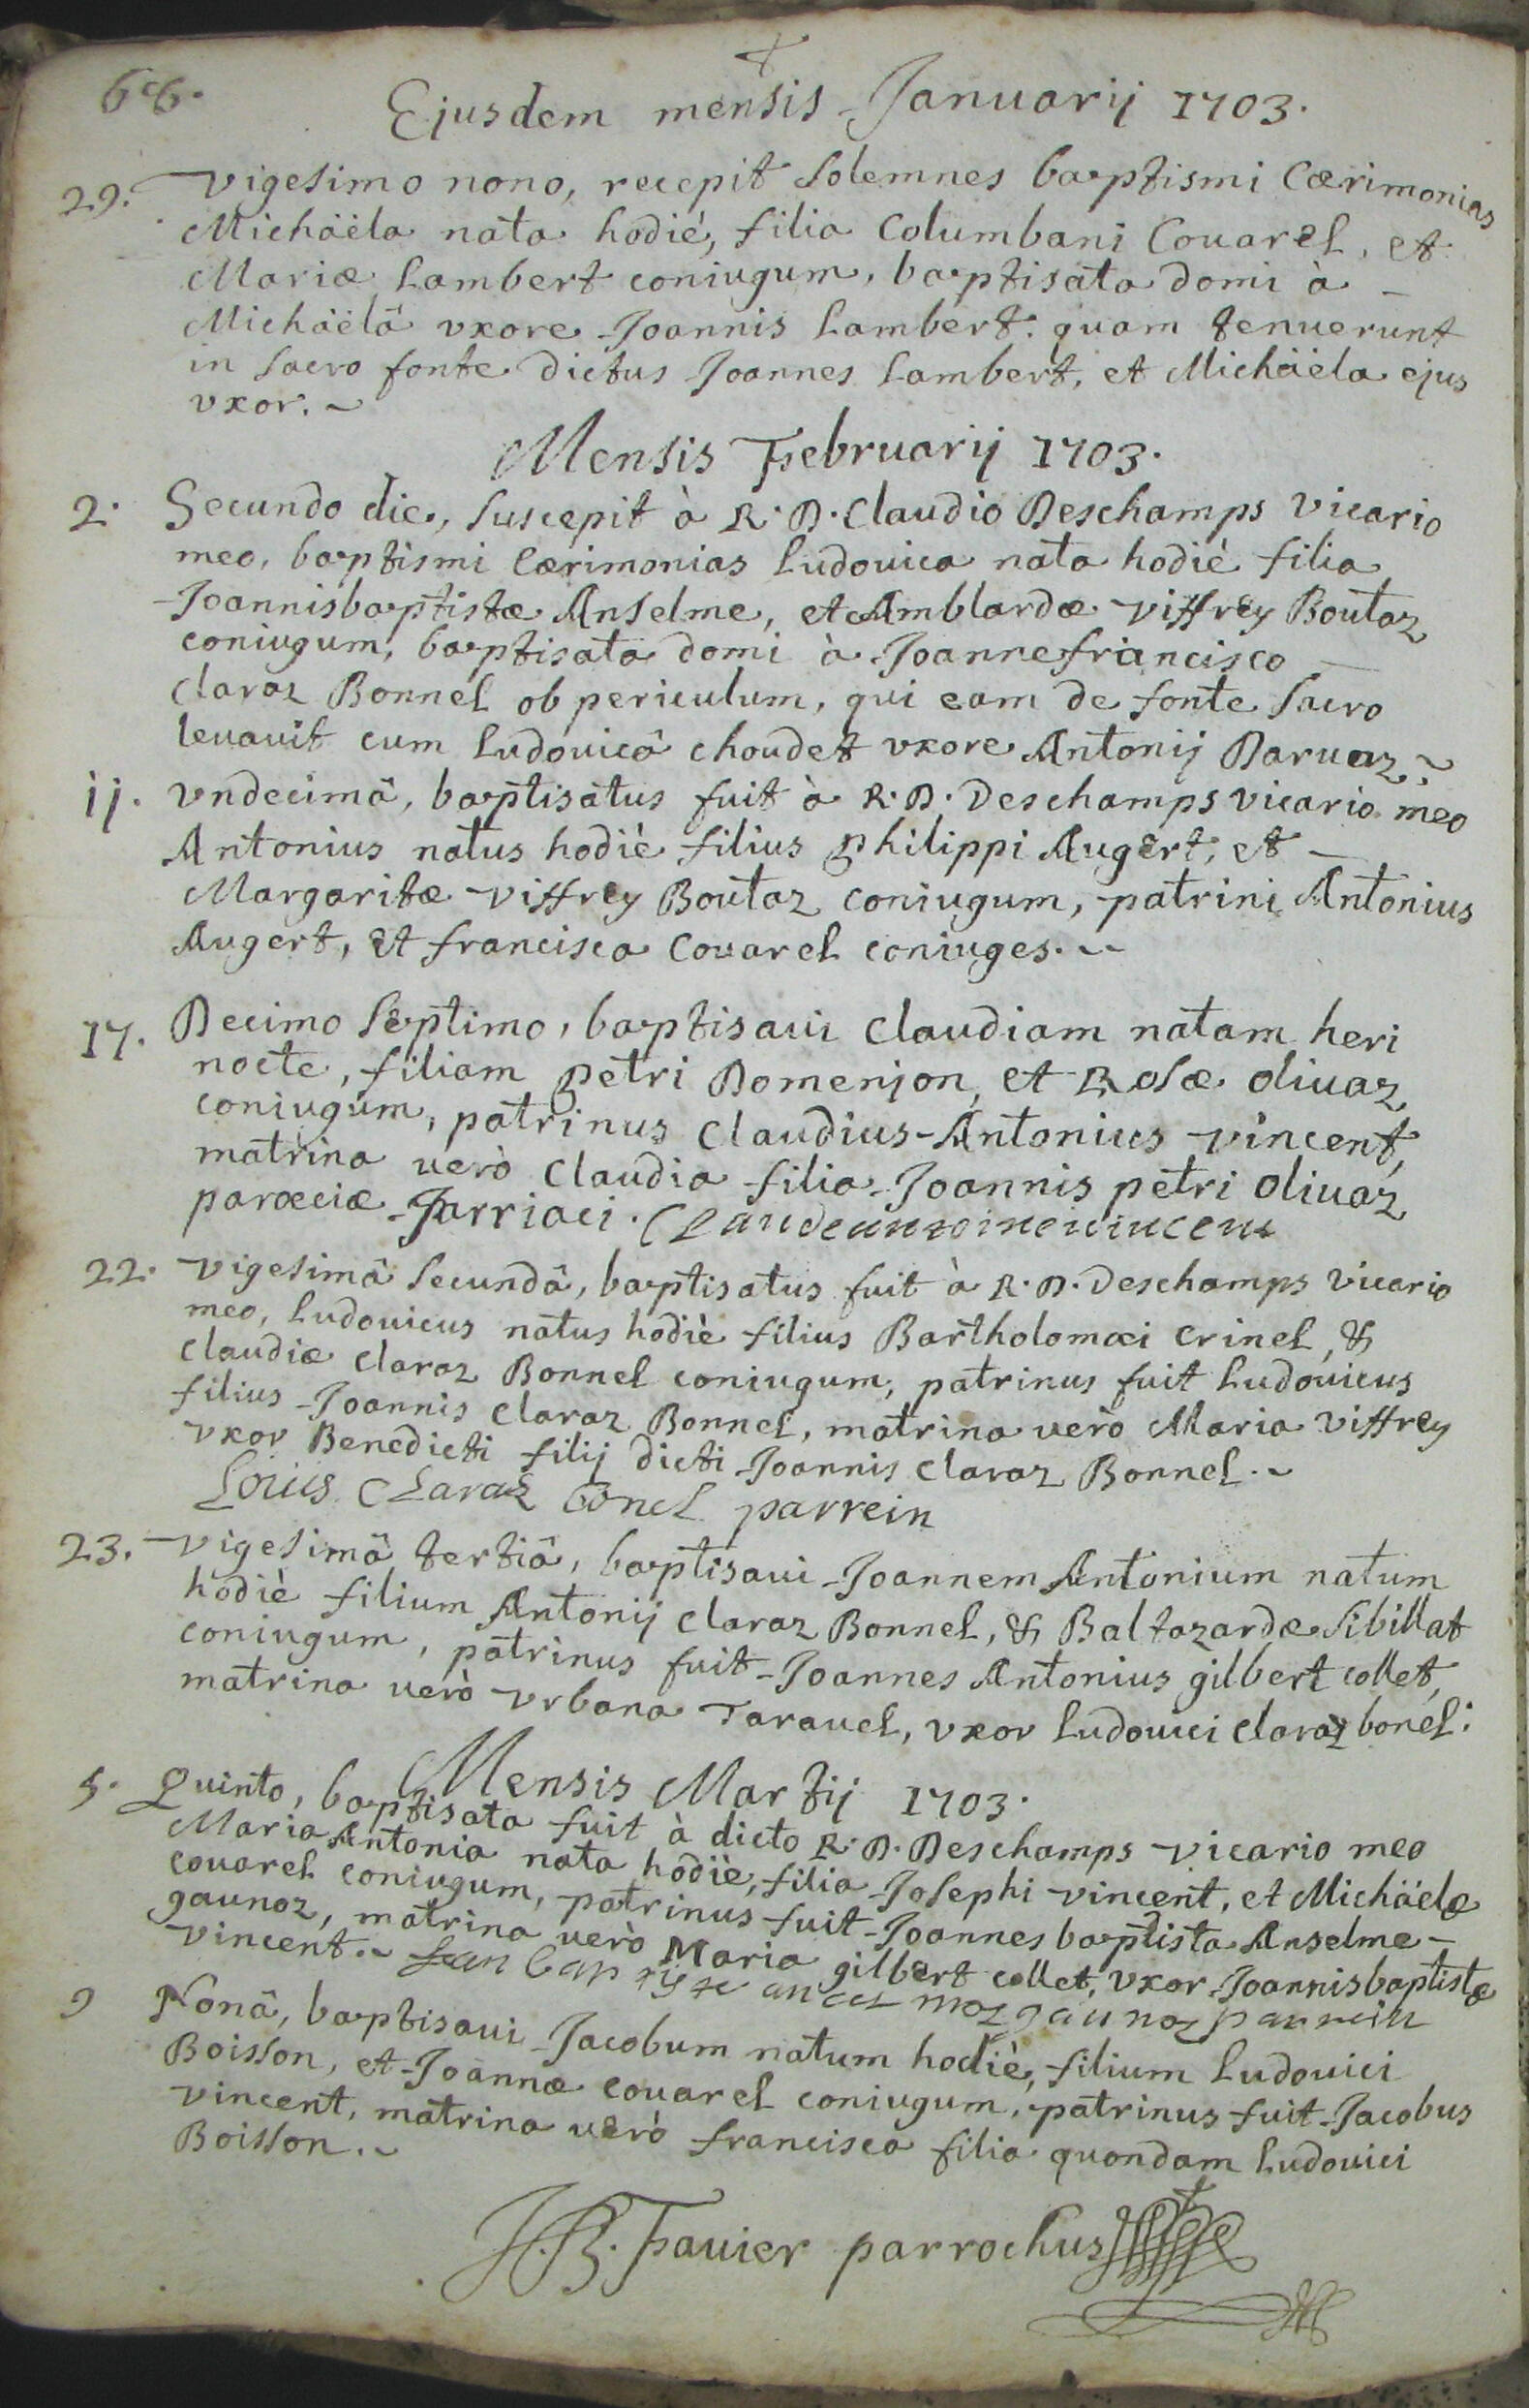 66.
Ejusdem mensis Januarij 1703.
29. Vigesimo nono, recepit solemnes baptismi Cærimonias
Michäela nata hodiè, filia Columbani Couarel, et
Mariæ Lambert coniugum, baptisata domi à
Michäelâ vxore Joannis Lambert. quam tenuerunt
in sacro fonte dictus Joannes Lambert, et Michäela ejus
vxor.
Mensis Februarij 1703.
2. Secundo die, suscepit à R. D. Claudio Deschamps Vicario
meo, baptismi Cærimonias Ludouica nata hodiè filia
Joannisbaptistæ Anselme, et Amblardæ Viffrey Boutaz
coniugum, baptisata domi à Joannefrancisco
Claraz Bonnel ob periculum, qui eam de fonte sacro
leuauit cum Ludouicâ choudet vxore Antonij Daruaz.
ij. Vndecimâ, baptisatus fuit à R. D. Deschamps vicario meo
Antonius natus hodiè filius Philippi Augert, et
Margaritæ Viffrey Boutaz coniugum, patrini Antonius
Augert, et francisca Couarel coniuges.
17. Decimo septimo, baptisaui Claudiam natam heri
nocte, filiam petri Domenjon, et Rosæ oliuaz
coniugum, patrinus Claudius-Antonius vincent,
matrina uerò Claudia filia Joannis petri oliuaz
parœciæ Jarriaci. Claudeantoine uincent
22. Vigesimâ secundâ, baptisatus fuit à R. D. Deschamps Vicario
meo, Ludouicus natus hodiè filius Bartholomæi Crinel, &
Claudiæ Claraz Bonnel coniugum, patrinus fuit Ludouicus
filius Joannis Claraz Bonnel, matrina uerò Maria Viffrey
vxor Benedicti filij dicti Joannis Claraz Bonnel.
Louis Claraz Bonel parrein
23. Vigesimâ tertiâ, baptisaui Joannem Antonium natum
hodiè filium Antonij Claraz Bonnel, & Baltazardæ Sibillat
coniugum, patrinus fuit Joannes Antonius gilbert collet,
matrina uerò Vrbana Tarauel, vxor Ludouici Claraz bonel.
Mensis Martij 1703.
5. Quinto, baptisata fuit à dicto R. D. Deschamps Vicario meo
Maria Antonia nata hodiè, filia Josephi vincent, et Michäelæ
couarel coniugum, patrinus fuit Joannes baptista Anselme
gaunoz, matrina uerò Maria gilbert collet, vxor Joannisbaptistæ
vincent. Jean baptiste gaunoz parrein
9 Nonâ, baptisaui Jacobum natum hodiè, filium Ludouici
Boisson, et Joannæ couarel coniugum, patrinus fuit Jacobus
vincent, matrina uerò francisca filia quondam Ludouici
Boisson.
J. B. Fauier parrochus